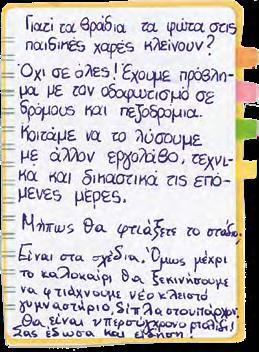 Γιατί τα βράδια τα φώτα στις
παιδικές χαρές κλείνουν?
Όχι σε όλες! Έχουμε πρόβλη-
μα με τον οδοφωτισμό σε
δρόμους και πεζοδρόμια.
Κοιτάμε να το λύσουμε
με άλλον εργολάβο, τεχνι-
κα και δικαστικά τις επό-
μενες μέρες.
Μήπως θα φτιάξετε το στάδιο;
Είναι στα σχέδια. Όμως μέχρι
το καλοκαίρι θα ξεκινήσουμε
να φτιάχνουμε νέο κλειστό
γυμναστήριο, δίπλα στο υπάρχον.
Θα είναι υπερσύγχρονο
Σας έδωσα και είδηση!